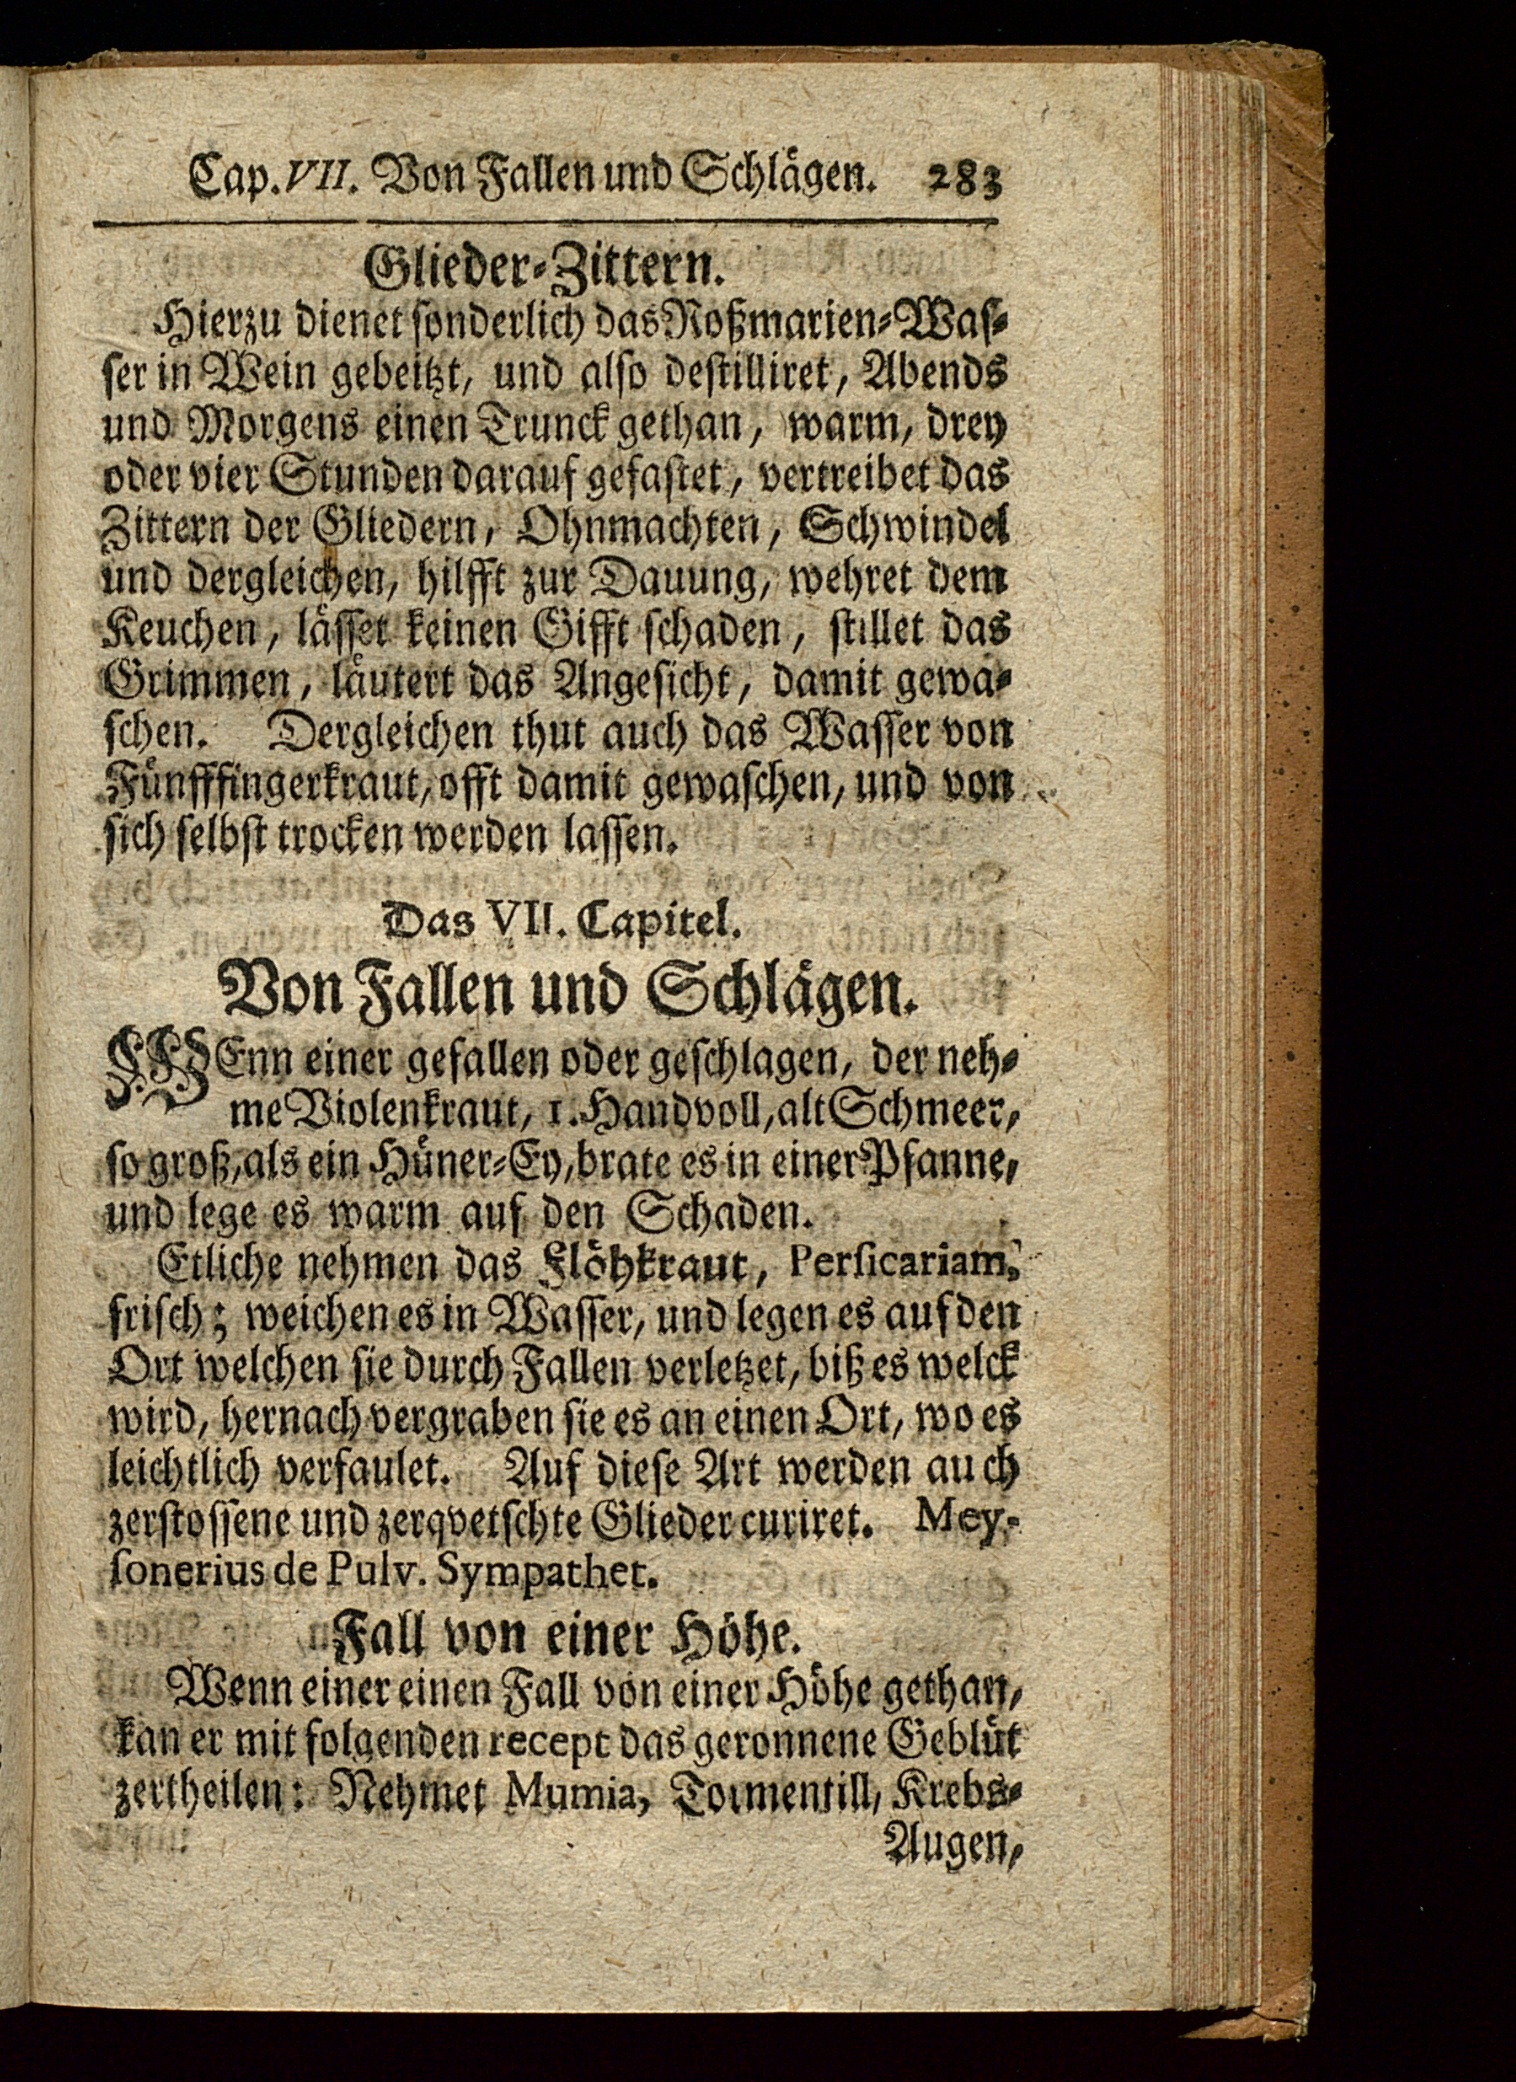 Cap. VII. Von Fallen und Schlägen. 283
Glieder-Zittern.
Hierzu dienet sonderlich das Roßmarien-Was-
ser in Wein gebeitzt, und also destilliret, Abends
und Morgens einen Trunck gethan, warm, drey
oder vier Stunden darauf gefastet, vertreibet das
Zittern der Gliedern, Ohnmachten, Schwindel
und dergleichen, hilfft zur Dauung, wehret dem
Keuchen, lässet keinen Gifft schaden, stillet das
Grimmen, läutert das Angesicht, damit gewa-
schen. Dergleichen thut auch das Wasser von
Fünfffingerkraut, offt damit gewaschen, und von
sich selbst trocken werden lassen.
Das VII. Capitel.
Von Fallen und Schlägen.
WEnn einer gefallen oder geschlagen, der neh-
me Violenkraut, 1. Handvoll, alt Schmeer,
so groß, als ein Hüner-Ey, brate es in einer Pfanne,
und lege es warm auf den Schaden.
Etliche nehmen das Flöhkraut, Persicariam,
frisch; weichen es in Wasser, und legen es auf den
Ort welchen sie durch Fallen verletzet, biß es welck
wird, hernach vergraben sie es an einen Ort, wo es
leichtlich verfaulet. Auf diese Art werden auch
zerstossene und zerqvetschte Glieder curiret. Mey-
sonerius de Pulv. Sympathet.
Fall von einer Höhe.
Wenn einer einen Fall von einer Höhe gethan,
kan er mit folgenden recept das geronnene Geblüt
zertheilen: Nehmet Mumia, Tormentill, Krebs-
Augen,